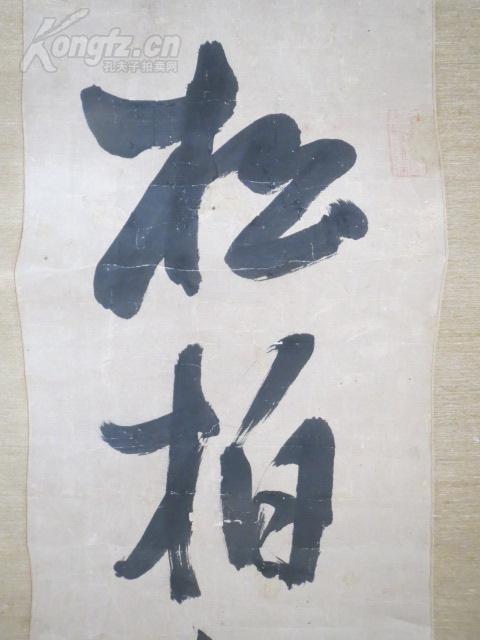 Kongfz.cn
孔夫子拍卖网
松
柏